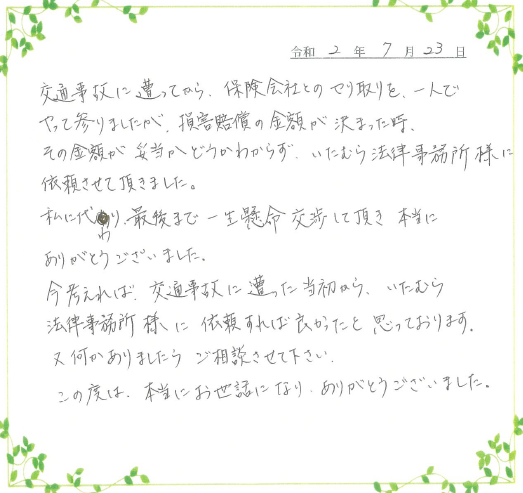 令和 2 年 7 月 23 日
交通事故に遭ってから、保険会社とのやり取りを、一人で
やって参りましたが、損害賠償の金額が決まった時、
その金額が妥当かどうかわからず、いたむら法律事務所様に
依頼させて頂きました。
私に代わり、最後まで一生懸命交渉して頂き本当に
ありがとうございました。
今考えれば、交通事故に遭った当初から、いたむら
法律事務所様に依頼すれば良かったと思っております。
又何かありましたらご相談させて下さい。
この度は、本当にお世話になり、ありがとうございました。